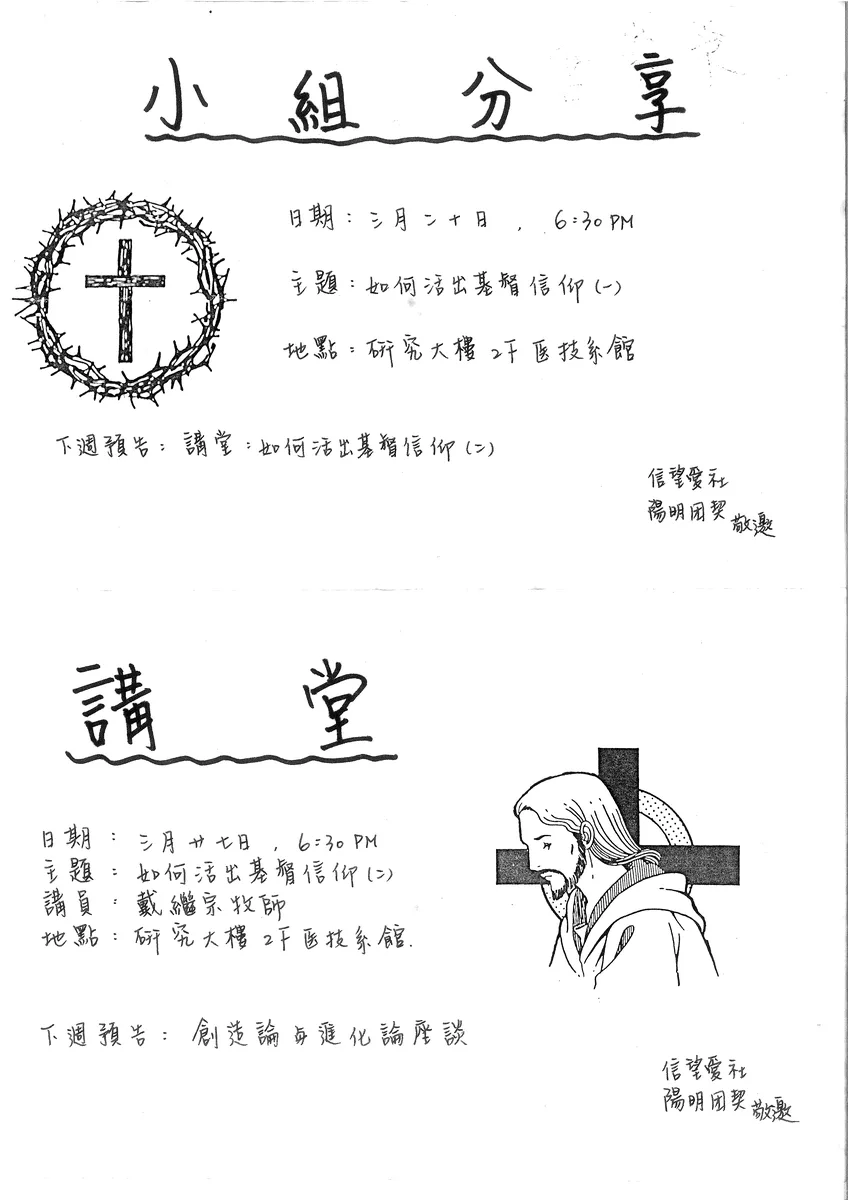 小組分享
日期：三月二十日，6:30PM
主題：如何活出基督信仰(一)
地點：研究大樓 2F 医技系館
下週預告：講堂：如何活出基督信仰(二)
信望愛社
陽明团契 敬邀
講堂
日期：三月廿七日，6:30PM
主題：如何活出基督信仰(二)
講員：戴繼宗牧師
地點：研究大樓 2F 医技系館.
下週預告：創造論与進化論座談
信望愛社
陽明团契 敬邀